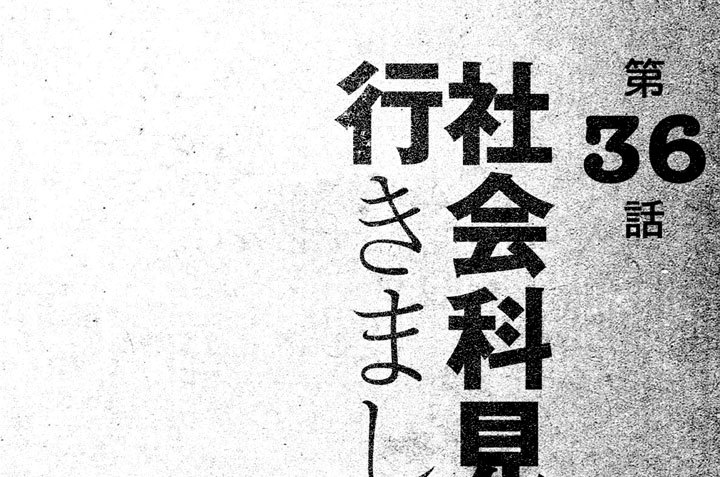 第36話
社会科見
行きまし